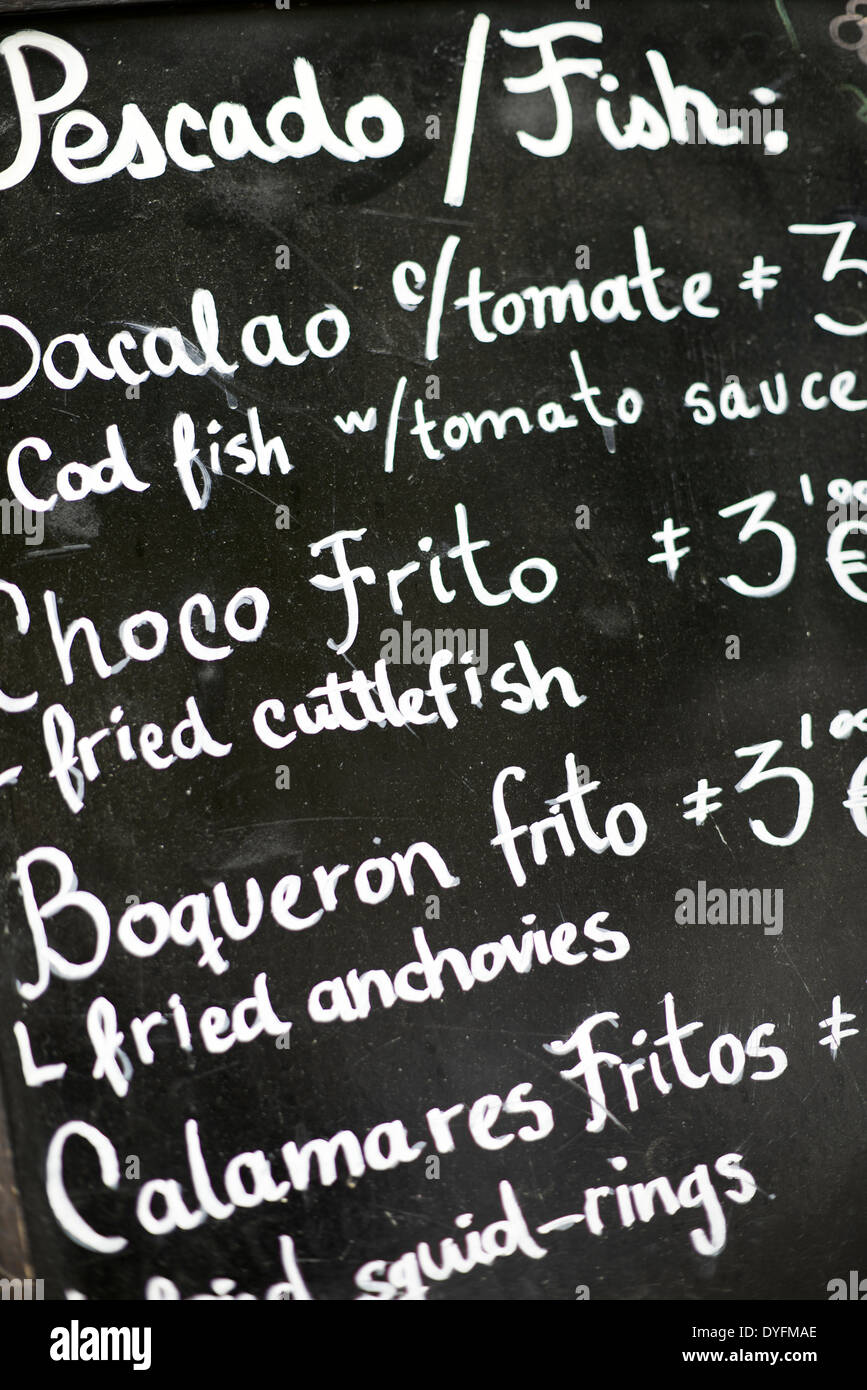 Pescado / Fish:
Bacalao c/tomate ≠ 3
Cod fish w/tomato sauce
Choco Frito ≠ 3'00 €
fried cuttlefish
Boqueron frito ≠ 3'00 €
L fried anchovies
Calamares Fritos ≠
fried squid-rings
alamy
Image ID: DYFMAE
www.alamy.com